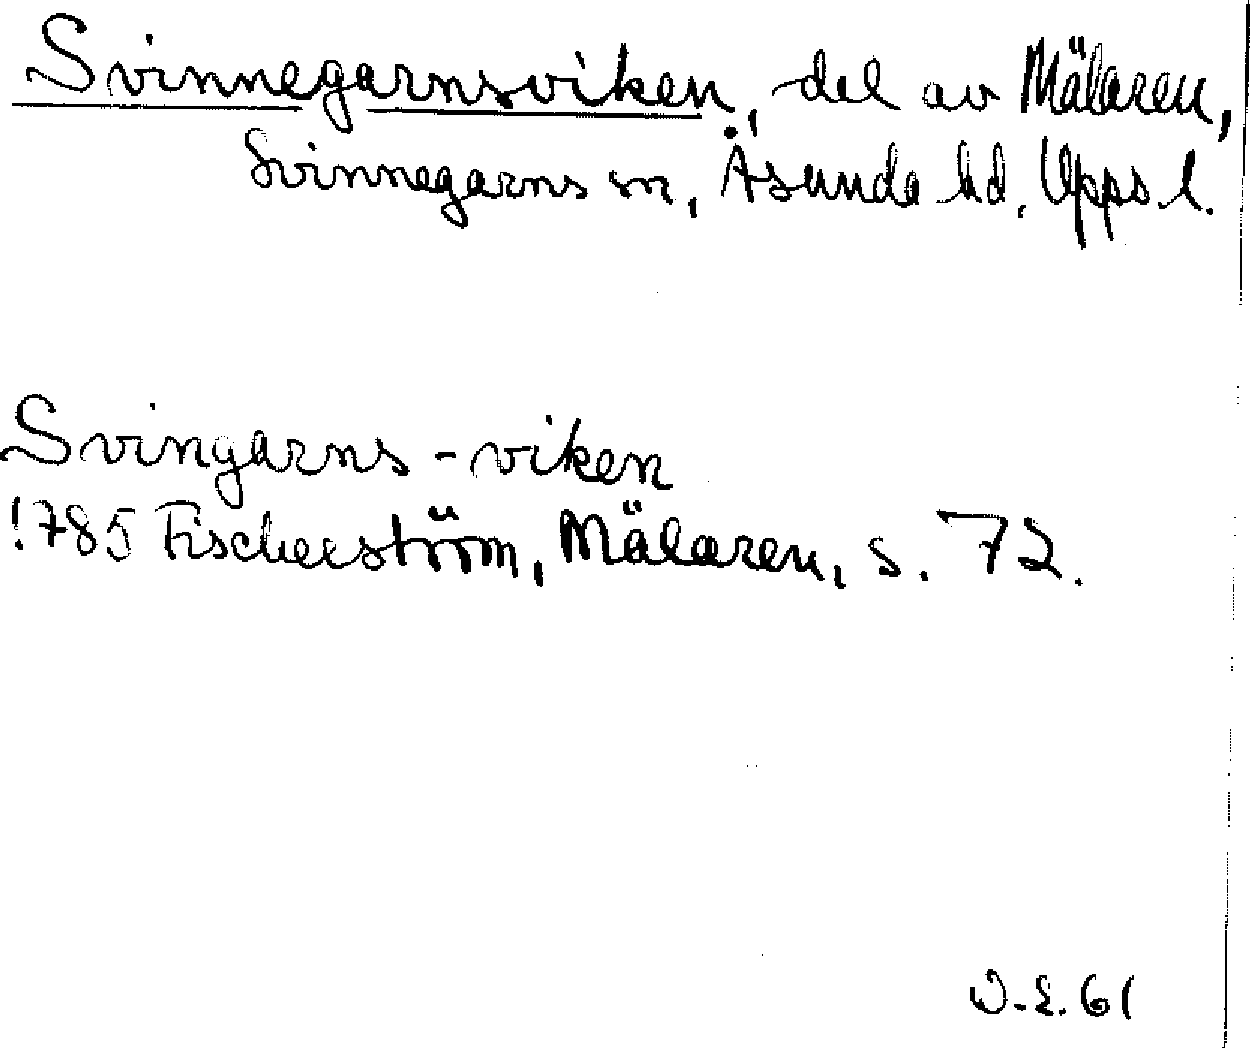 Svinnegarnsviken, del av Mälaren,
Svinnegarns sn, Åsunda hd, Upps. l.
Svingarns-viken
1785 Fischerström, Mälaren, s. 72.
D.L. 61